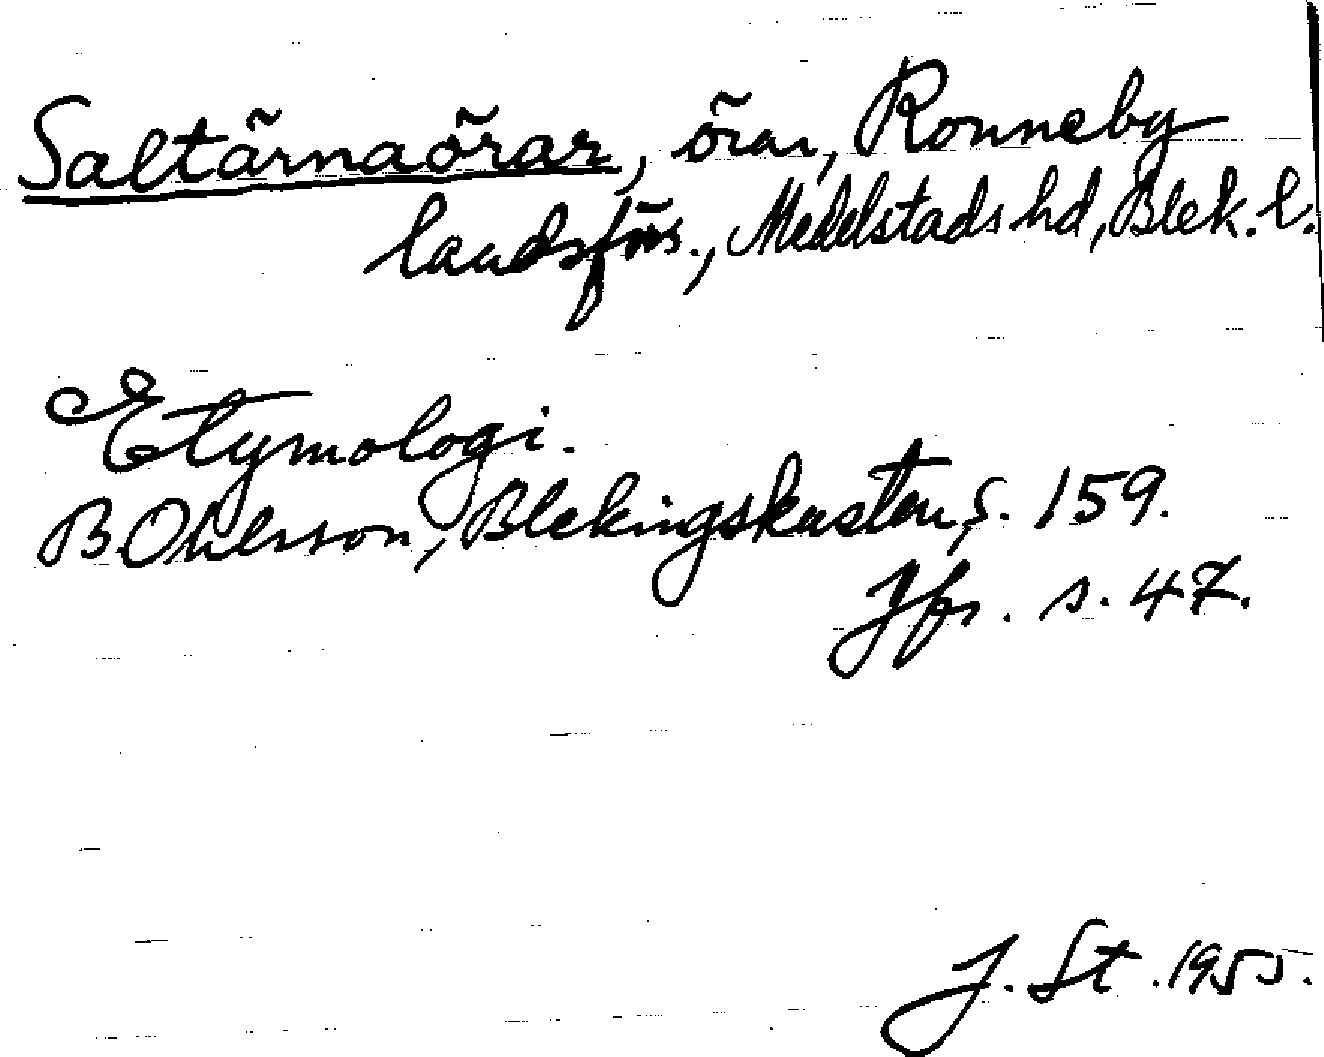 Saltärnaörar, örar, Ronneby
landsförs., Medelstads hd, Blek. l.
Etymologi.
B Ohlsson, Blekingskusten, s. 159.
Jfr. s. 47.
J. St. 1955.